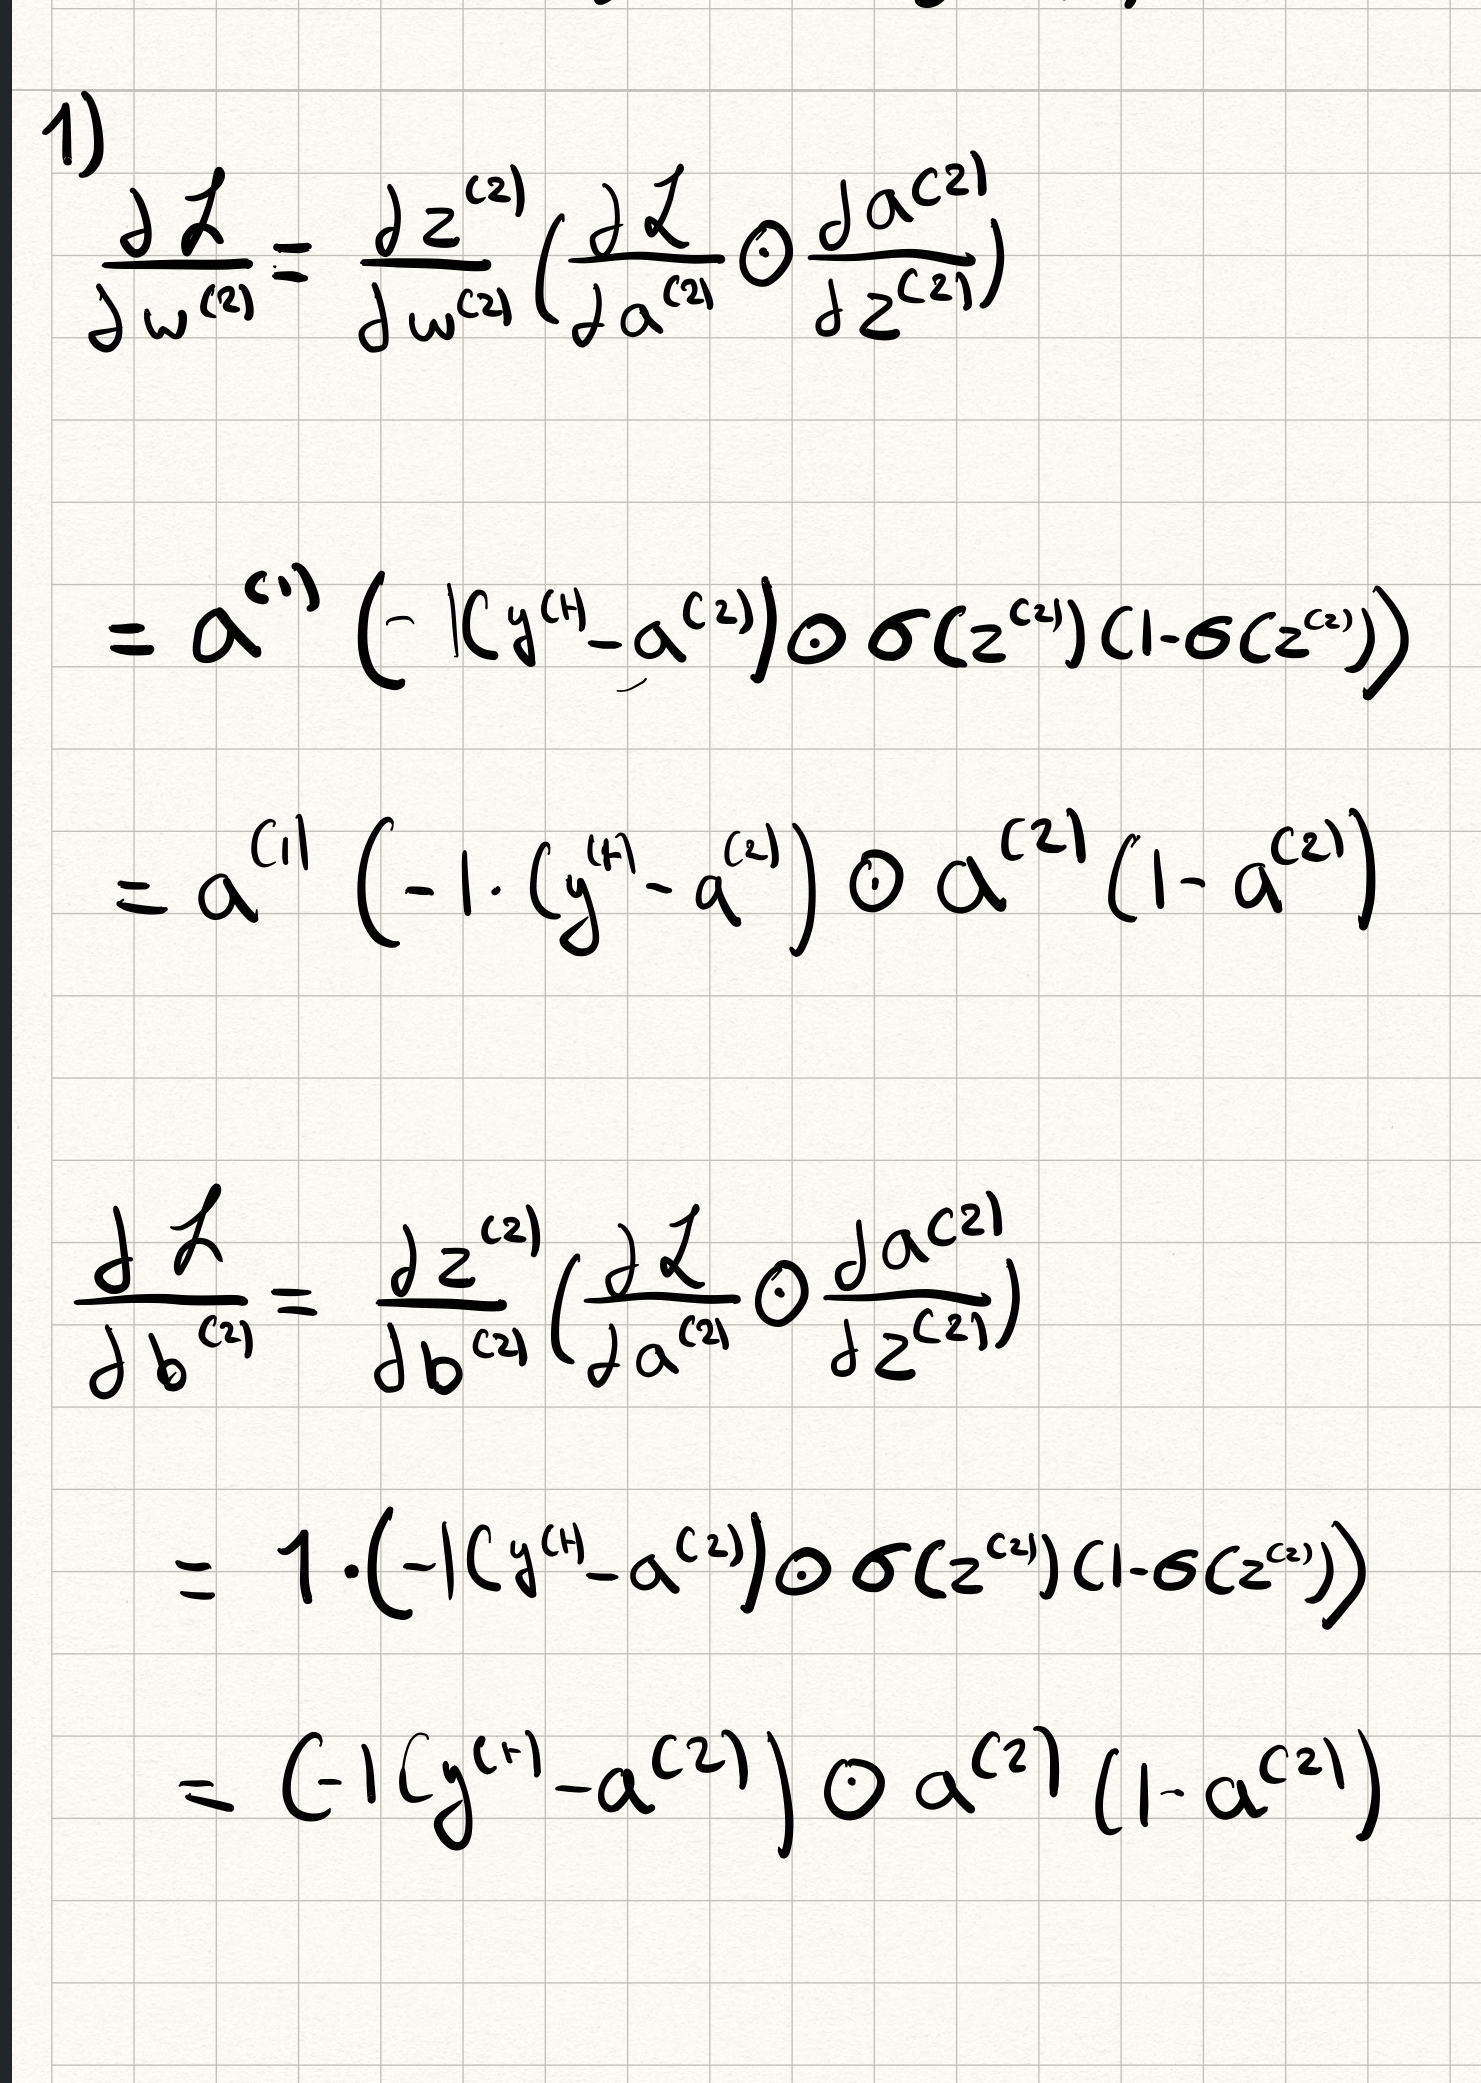 1)
∂ℒ/∂w⁽²⁾ = ∂z⁽²⁾/∂w⁽²⁾ (∂ℒ/∂a⁽²⁾ ⊙ ∂a⁽²⁾/∂z⁽²⁾)
= a⁽¹⁾ (-1(y⁽ᵗ⁾ - a⁽²⁾) ⊙ σ(z⁽²⁾)(1-σ(z⁽²⁾))
= a⁽¹⁾ (-1·(y⁽ᵗ⁾ - a⁽²⁾) ⊙ a⁽²⁾ (1 - a⁽²⁾)
∂ℒ/∂b⁽²⁾ = ∂z⁽²⁾/∂b⁽²⁾ (∂ℒ/∂a⁽²⁾ ⊙ ∂a⁽²⁾/∂z⁽²⁾)
= 1·(-1(y⁽ᵗ⁾ - a⁽²⁾) ⊙ σ(z⁽²⁾)(1-σ(z⁽²⁾))
= (-1(y⁽ᵗ⁾ - a⁽²⁾) ⊙ a⁽²⁾ (1 - a⁽²⁾)